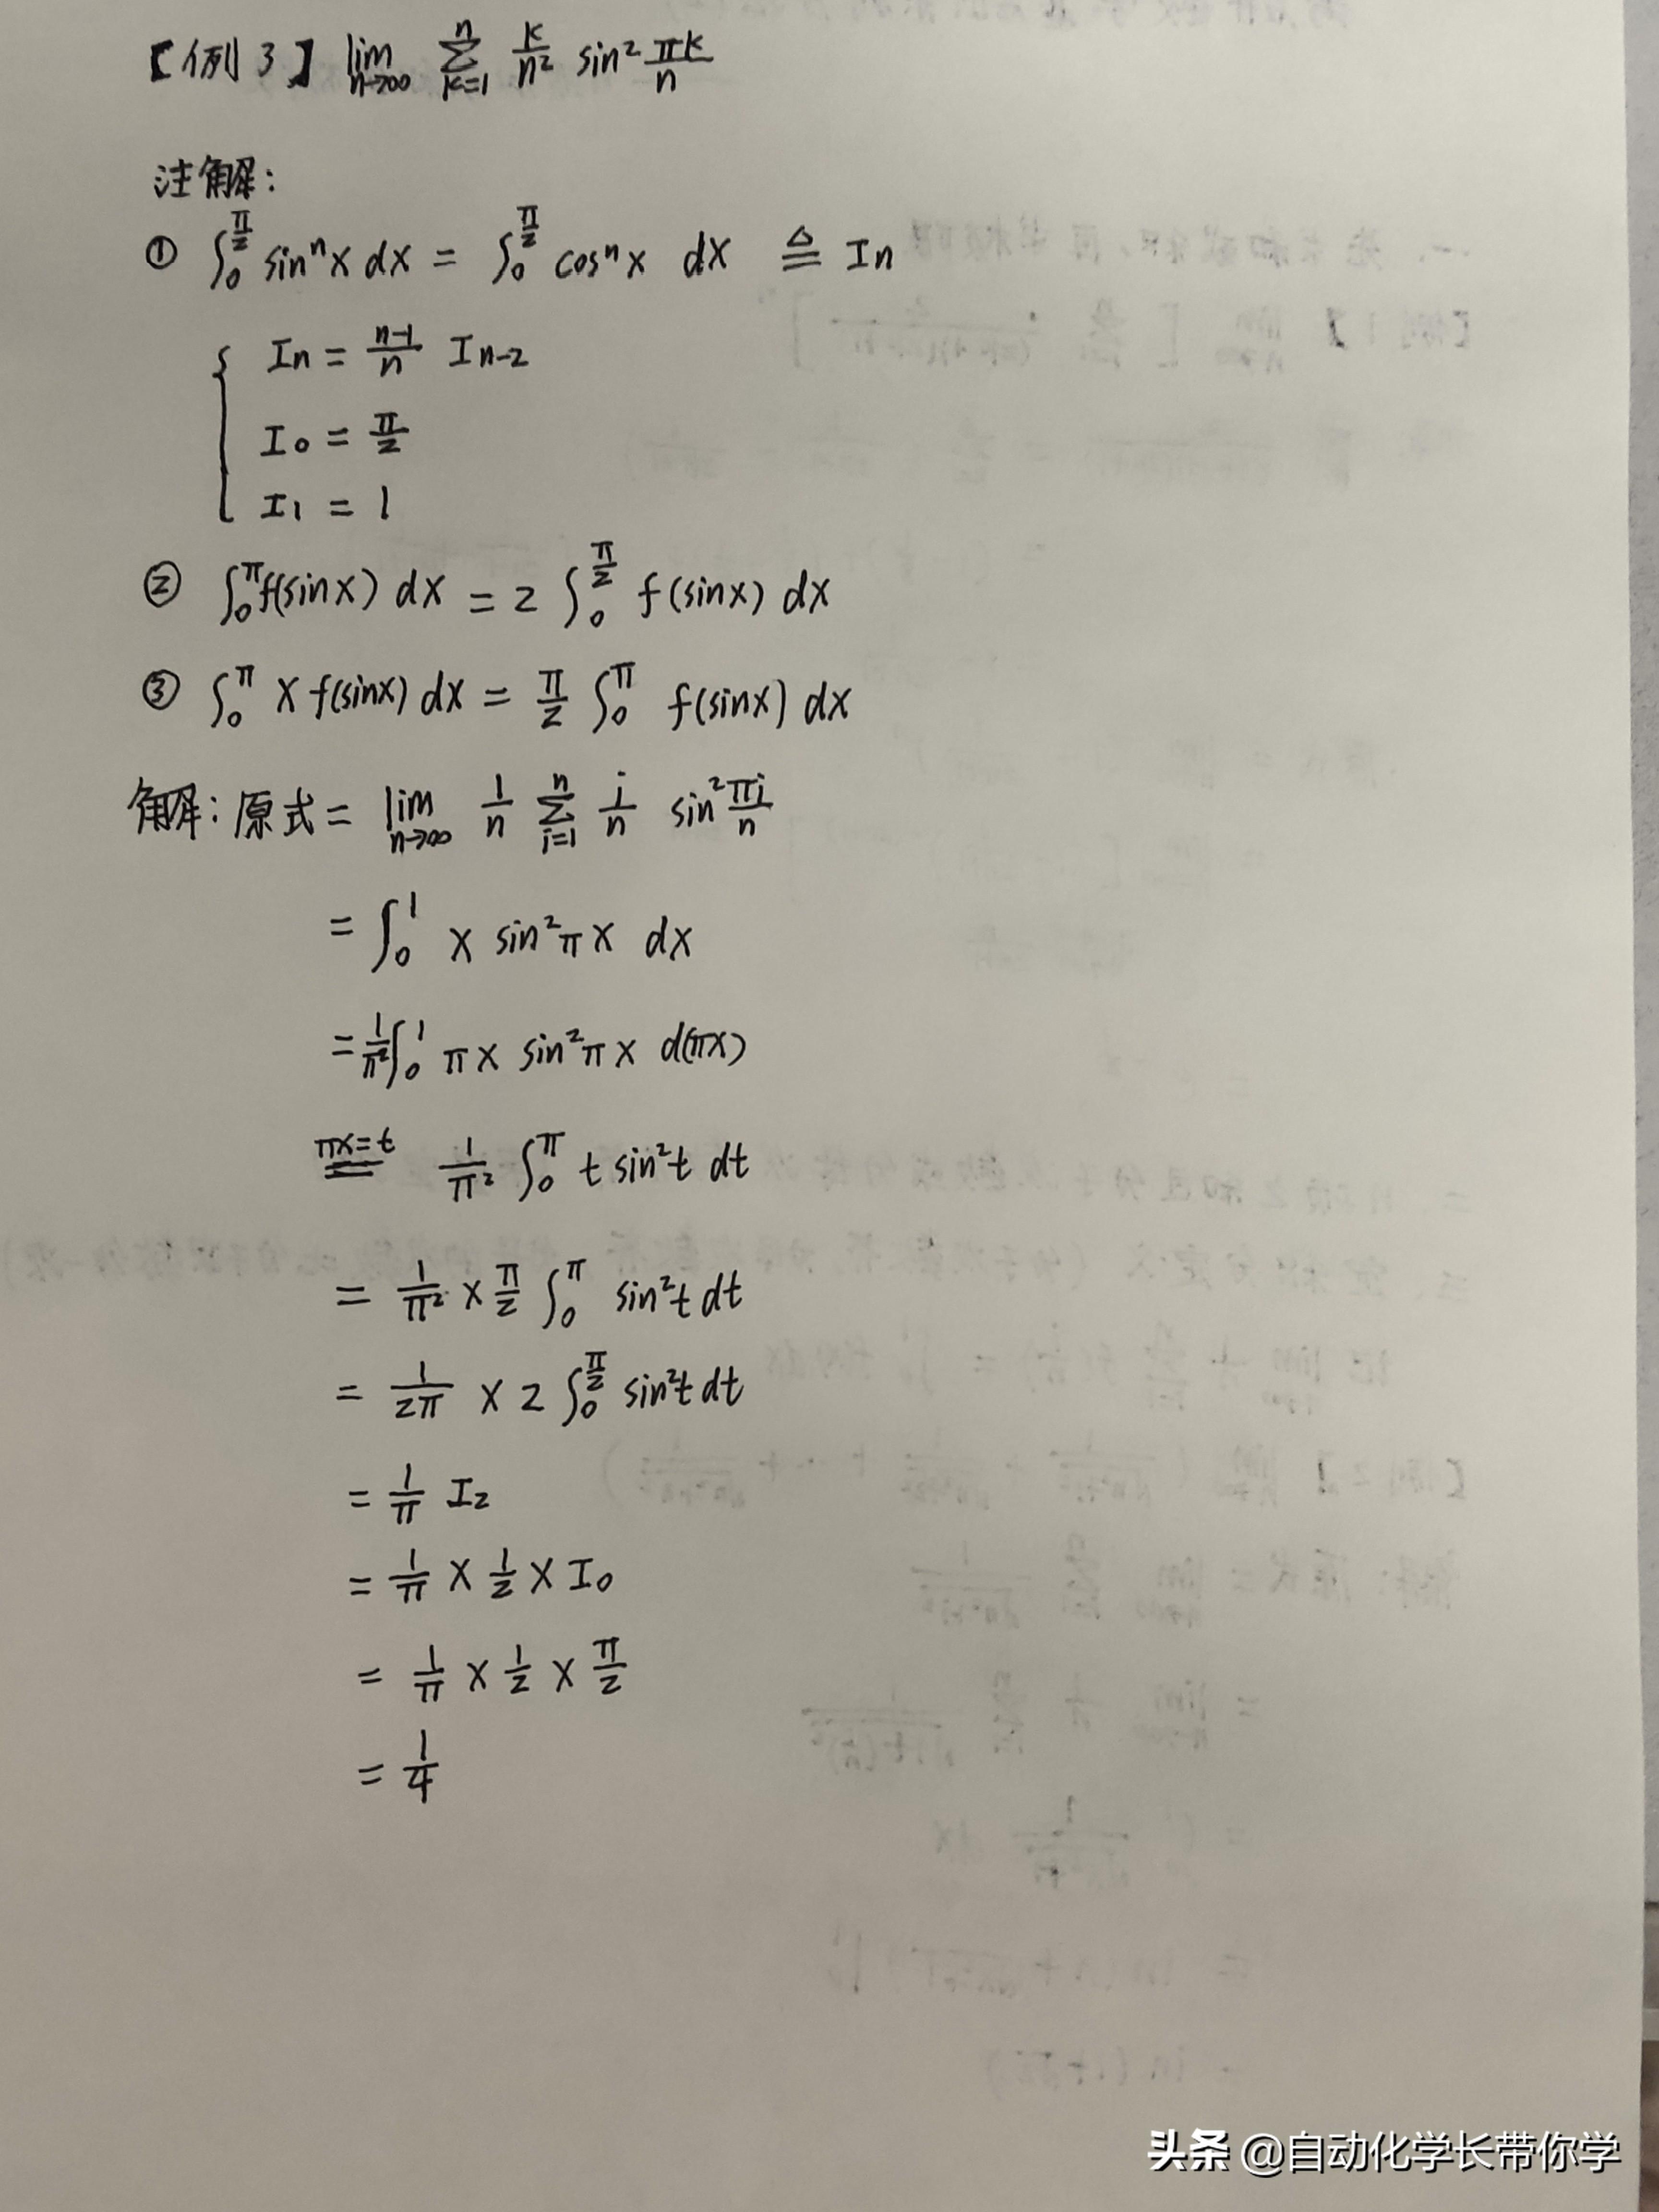 【例3】 lim n→∞ ∑ k=1 n k/n² sin² πk/n
注解:
① ∫₀^(π/2) sinⁿx dx = ∫₀^(π/2) cosⁿx dx ≜ In
In = n-1/n In-2
I0 = π/2
I1 = 1
② ∫₀^π f(sinx) dx = 2 ∫₀^(π/2) f(sinx) dx
③ ∫₀^π x f(sinx) dx = π/2 ∫₀^π f(sinx) dx
解:原式 = lim n→∞ 1/n ∑ i=1 n i/n sin² πi/n
= ∫₀^1 x sin²πx dx
= 1/π² ∫₀^1 πx sin²πx d(πx)
πx=t == 1/π² ∫₀^π t sin²t dt
= 1/π² × π/2 ∫₀^π sin²t dt
= 1/2π × 2 ∫₀^(π/2) sin²t dt
= 1/π I2
= 1/π × 1/2 × I0
= 1/π × 1/2 × π/2
= 1/4
头条 @自动化学长带你学